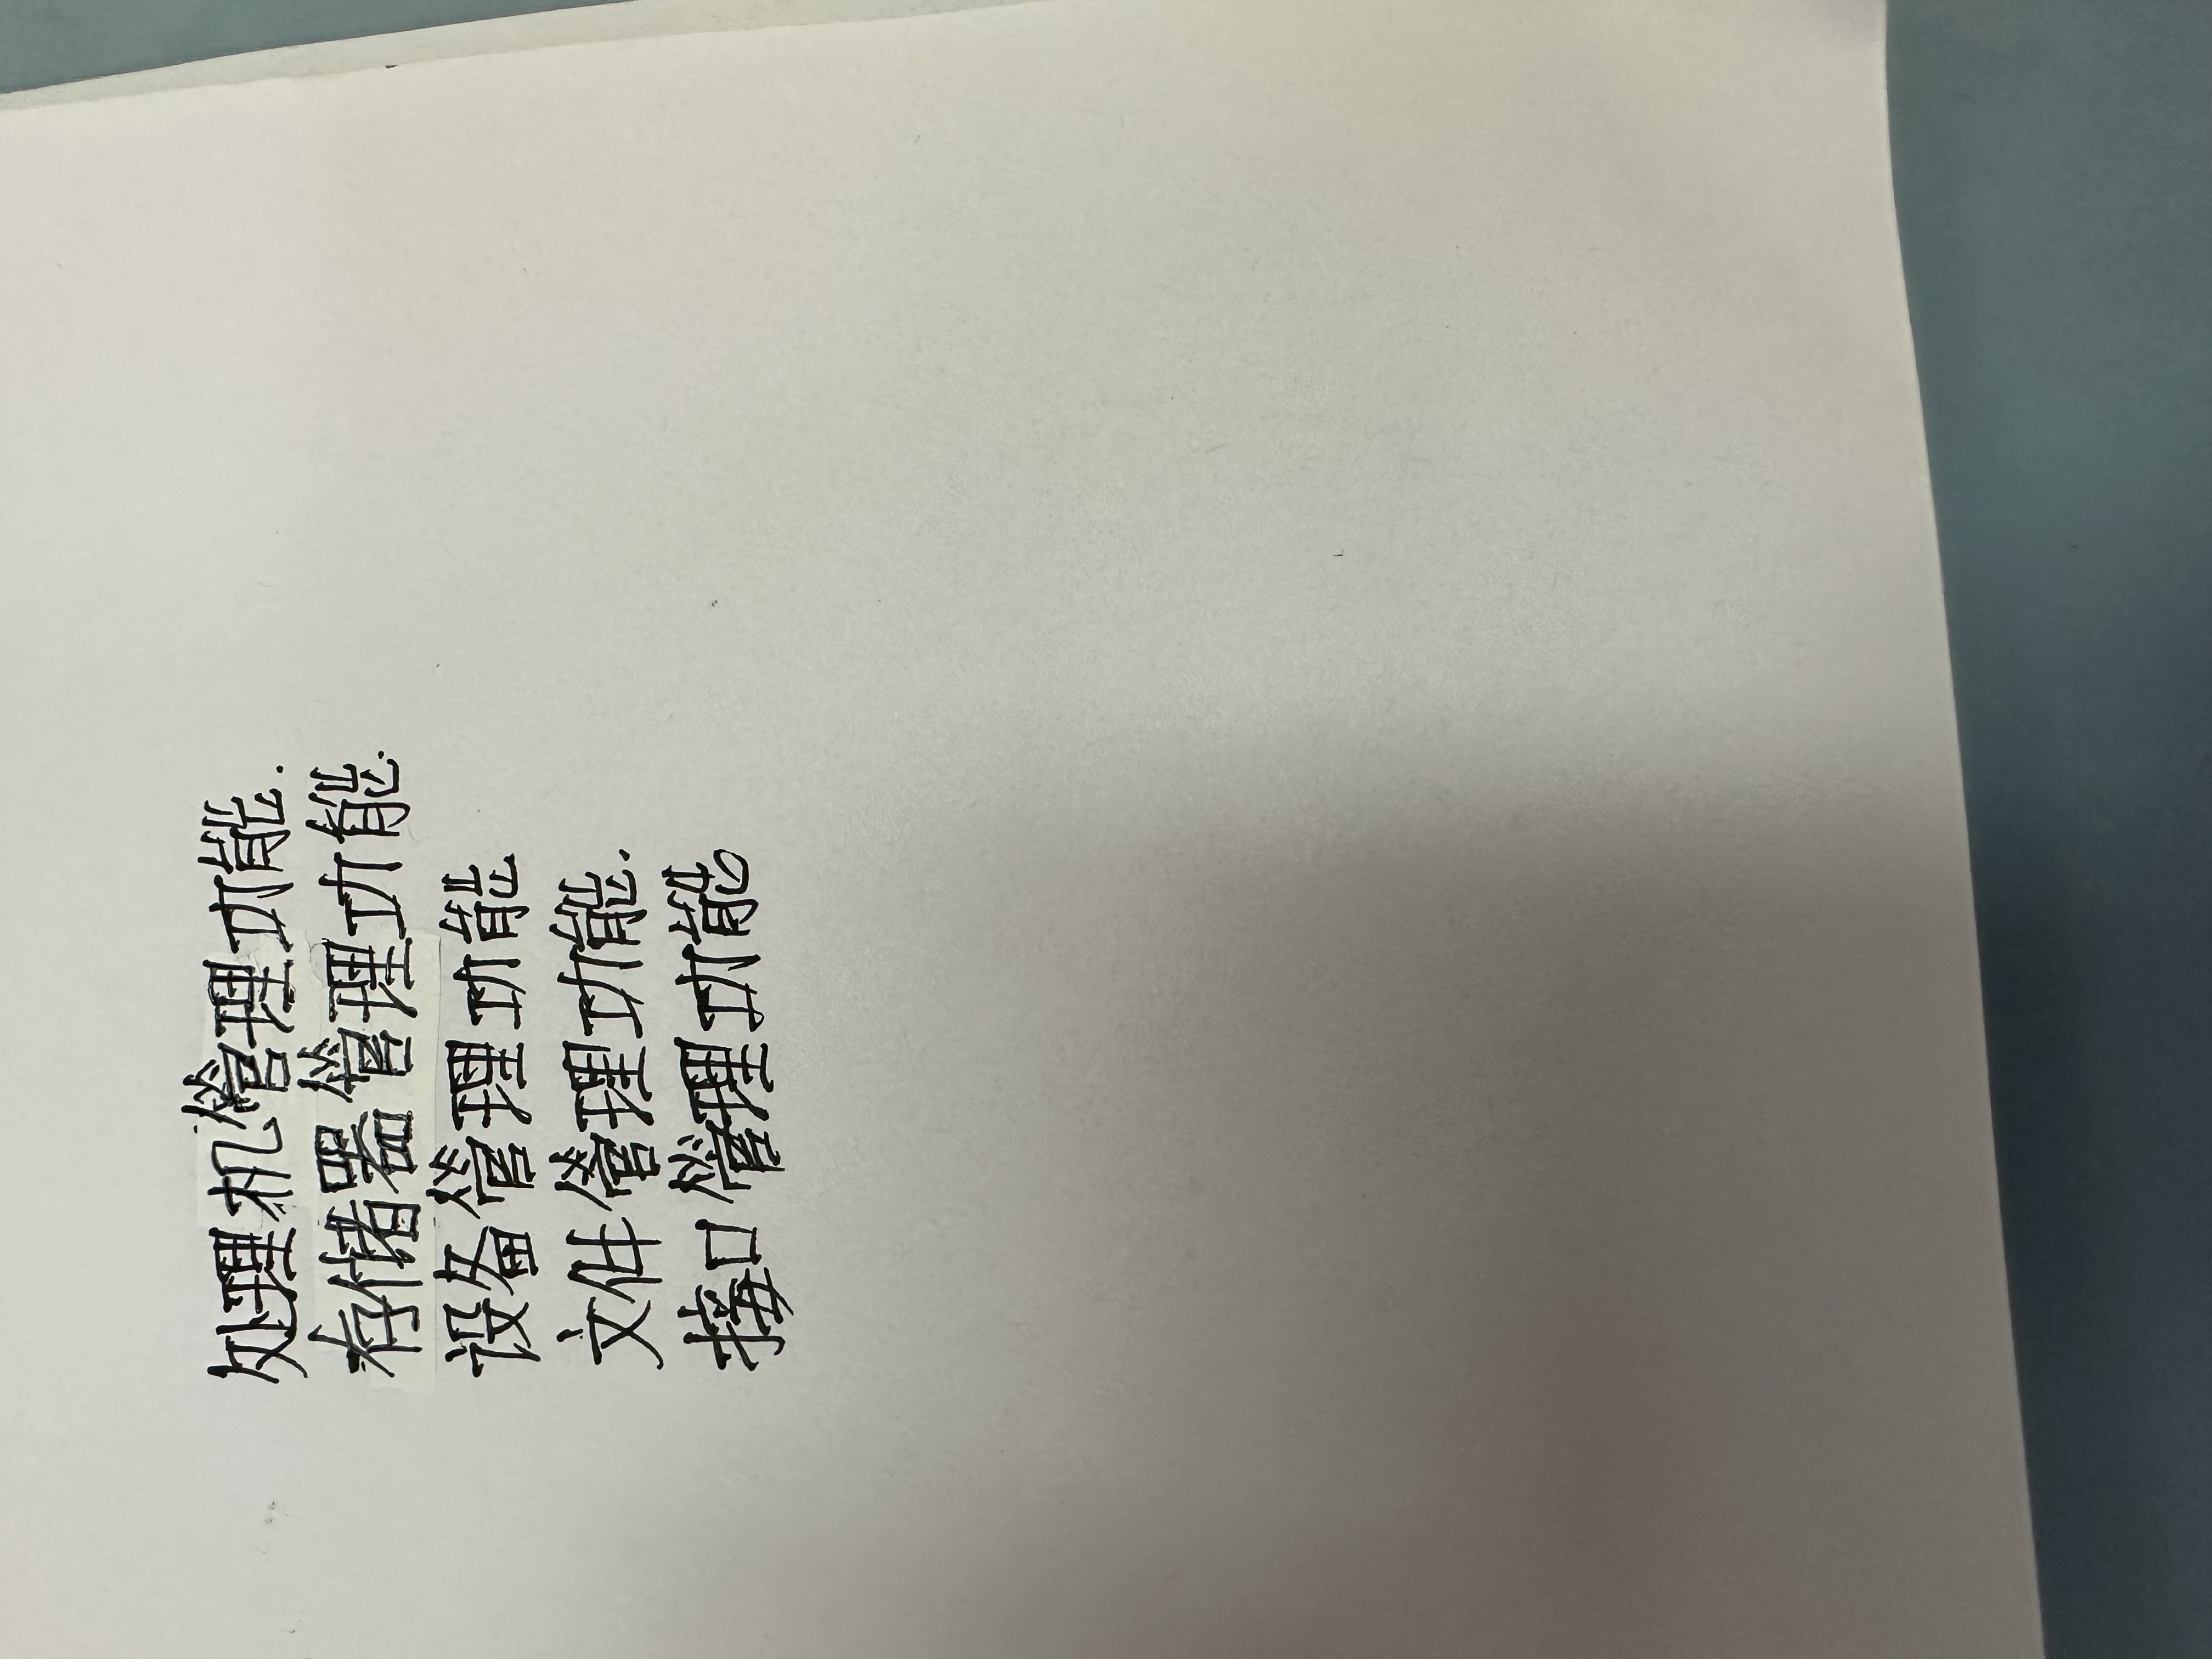 处理机管理功能.
存储器管理功能.
设备管理功能
文件管理功能.
接口管理功能。